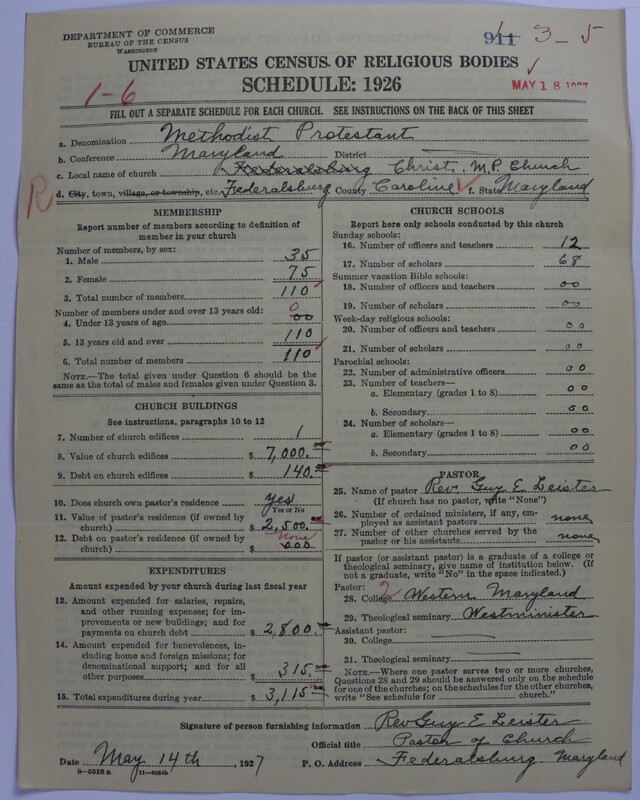 DEPARTMENT OF COMMERCE
BUREAU OF THE CENSUS
WASHINGTON
911 3-5
UNITED STATES CENSUS OF RELIGIOUS BODIES
SCHEDULE: 1926
MAY 18 1927
1-6
FILL OUT A SEPARATE SCHEDULE FOR EACH CHURCH. SEE INSTRUCTIONS ON THE BACK OF THIS SHEET
a. Denomination Methodist Protestant
b. Conference Maryland District
c. Local name of church Federalsburg Christ. M.P. Church
R d. City, town, village, or township, etc. Federalsburg County Caroline f. State Maryland
MEMBERSHIP
Report number of members according to definition of
member in your church
Number of members, by sex:
1. Male 35
2. Female 75
3. Total number of members 110
Number of members under and over 13 years old:
4. Under 13 years of age 0 00
5. 13 years old and over 110
6. Total number of members 110
NOTE.—The total given under Question 6 should be
same as the total of males and females given under Question 3.
CHURCH BUILDINGS
See instructions, paragraphs 10 to 12
7. Number of church edifices 1
8. Value of church edifices $ 7,000.
9. Debt on church edifices $ 140.
10. Does church own pastor's residence yes
Yes or No
11. Value of pastor's residence (if owned by
church) $ 2,500.
12. Debt on pastor's residence (if owned by
church) $ 000 None
EXPENDITURES
Amount expended by your church during last fiscal year
13. Amount expended for salaries, repairs,
and other running expenses; for im-
provements or new buildings; and for
payments on church debt $ 2,800.
14. Amount expended for benevolences,
including home and foreign missions; for
denominational support; and for all
other purposes $ 315.
15. Total expenditures during year $ 3,115
CHURCH SCHOOLS
Report here only schools conducted by this church
Sunday schools:
16. Number of officers and teachers 12
17. Number of scholars 68
Summer vacation Bible schools:
18. Number of officers and teachers 00
19. Number of scholars 00
Week-day religious schools:
20. Number of officers and teachers 00
21. Number of scholars 00
Parochial schools:
22. Number of administrative officers 00
23. Number of teachers—
a. Elementary (grades 1 to 8) 00
b. Secondary 00
24. Number of scholars—
a. Elementary (grades 1 to 8) 00
b. Secondary 00
PASTOR
25. Name of pastor Rev. Guy E. Leister
(If church has no pastor, write "None")
26. Number of ordained ministers, if any, em-
ployed as assistant pastors none
27. Number of other churches served by the
pastor or his assistants none
If pastor (or assistant pastor) is a graduate of a college or
theological seminary, give name of institution below. (If
not a graduate, write "No" in the space indicated.)
Pastor: 2
28. College Western Maryland
29. Theological seminary Westminister
Assistant pastor:
30. College
31. Theological seminary
NOTE.—Where one pastor serves two or more churches,
Questions 28 and 29 should be answered only on the schedule
for one of the churches; on the schedules for the other churches,
write "See schedule for church."
Signature of person furnishing information Rev Guy E Leister
Official title Pastor of Church
Date May 14th, 1927 P. O. Address Federalsburg, Maryland